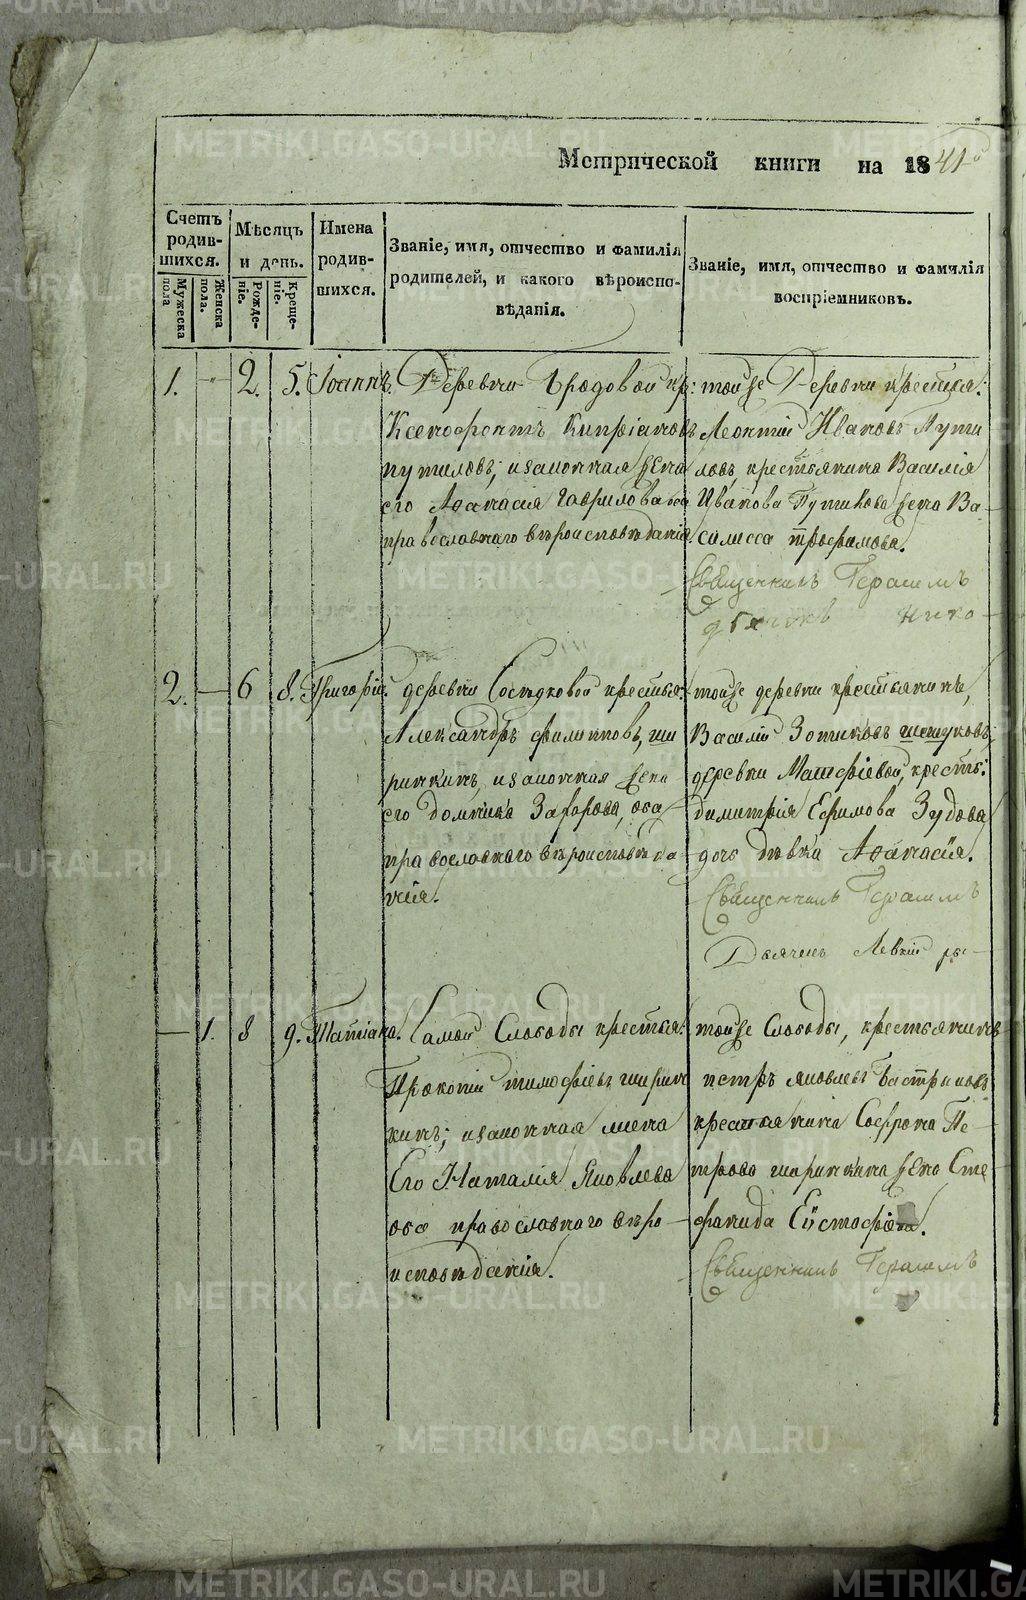 METRIKI.GASO-URAL.RU
Метрической книги на 1841й
Счетъ родив-шихся.
Мужеска пола
Женска пола.
Мѣсяцъ и день.
Рожде-ніе.
Креще-ніе.
Имена родив-шихся.
Званіе, имя, отчество и фамилія
родителей, и какого вѣроиспо-
вѣданія.
Званіе, имя, отчество и фамилія
воспріемниковъ.
1. — 2. 5. Іоаннъ.
Деревни Бродовой кр:
Ксенофонтъ Кипріяновъ
путиловъ, изаконная жена
его Афанасія Гаврилова оба
православнаго вѣроисповѣданія.
тойже Деревни крестьян:
Леонтій Ивановъ Пути
ловъ, крестьянина Василія
Иванова Путилова жена Ва-
силисса Трофимова.
Священникъ Герасимъ
дьячекъ
2. — 6 8. Григорій.
деревни крестья:
Александръ филипповъ, ши
ринкинъ, изаконная жена
его домника Захарова, оба
православнаго вѣроисповѣда-
нія.
тойже деревни крестьянинъ,
Василій Зотиковъ
деревни Матфіевой, кресть:
димитрія Ефимова Зудова
дочь дѣвка Афанасія.
Священникъ Герасимъ
Дьячекъ Левкій
— 1. 8 9. Татіана.
Самой Слободы крестья:
Прокопій тимофіевъ ширин
кинъ; изаконная жена
Его Наталія Яковлева
оба православнаго вѣро-
исповѣданія.
тойже Слободы, крестьянинъ
петръ яковлевъ Бастриковъ
крестьянина Софрона Пе-
трова ширинкина жена Сте
фанида
Священникъ Герасимъ